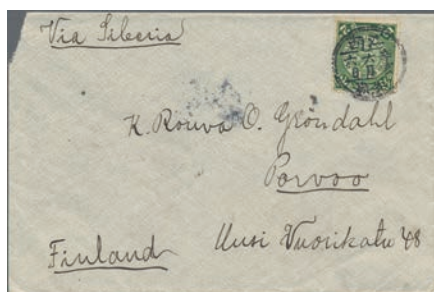 Via Siberia
K. Rouva O. Gröndahl
Porvoo
Uusi Vuorikatu 48
Finland